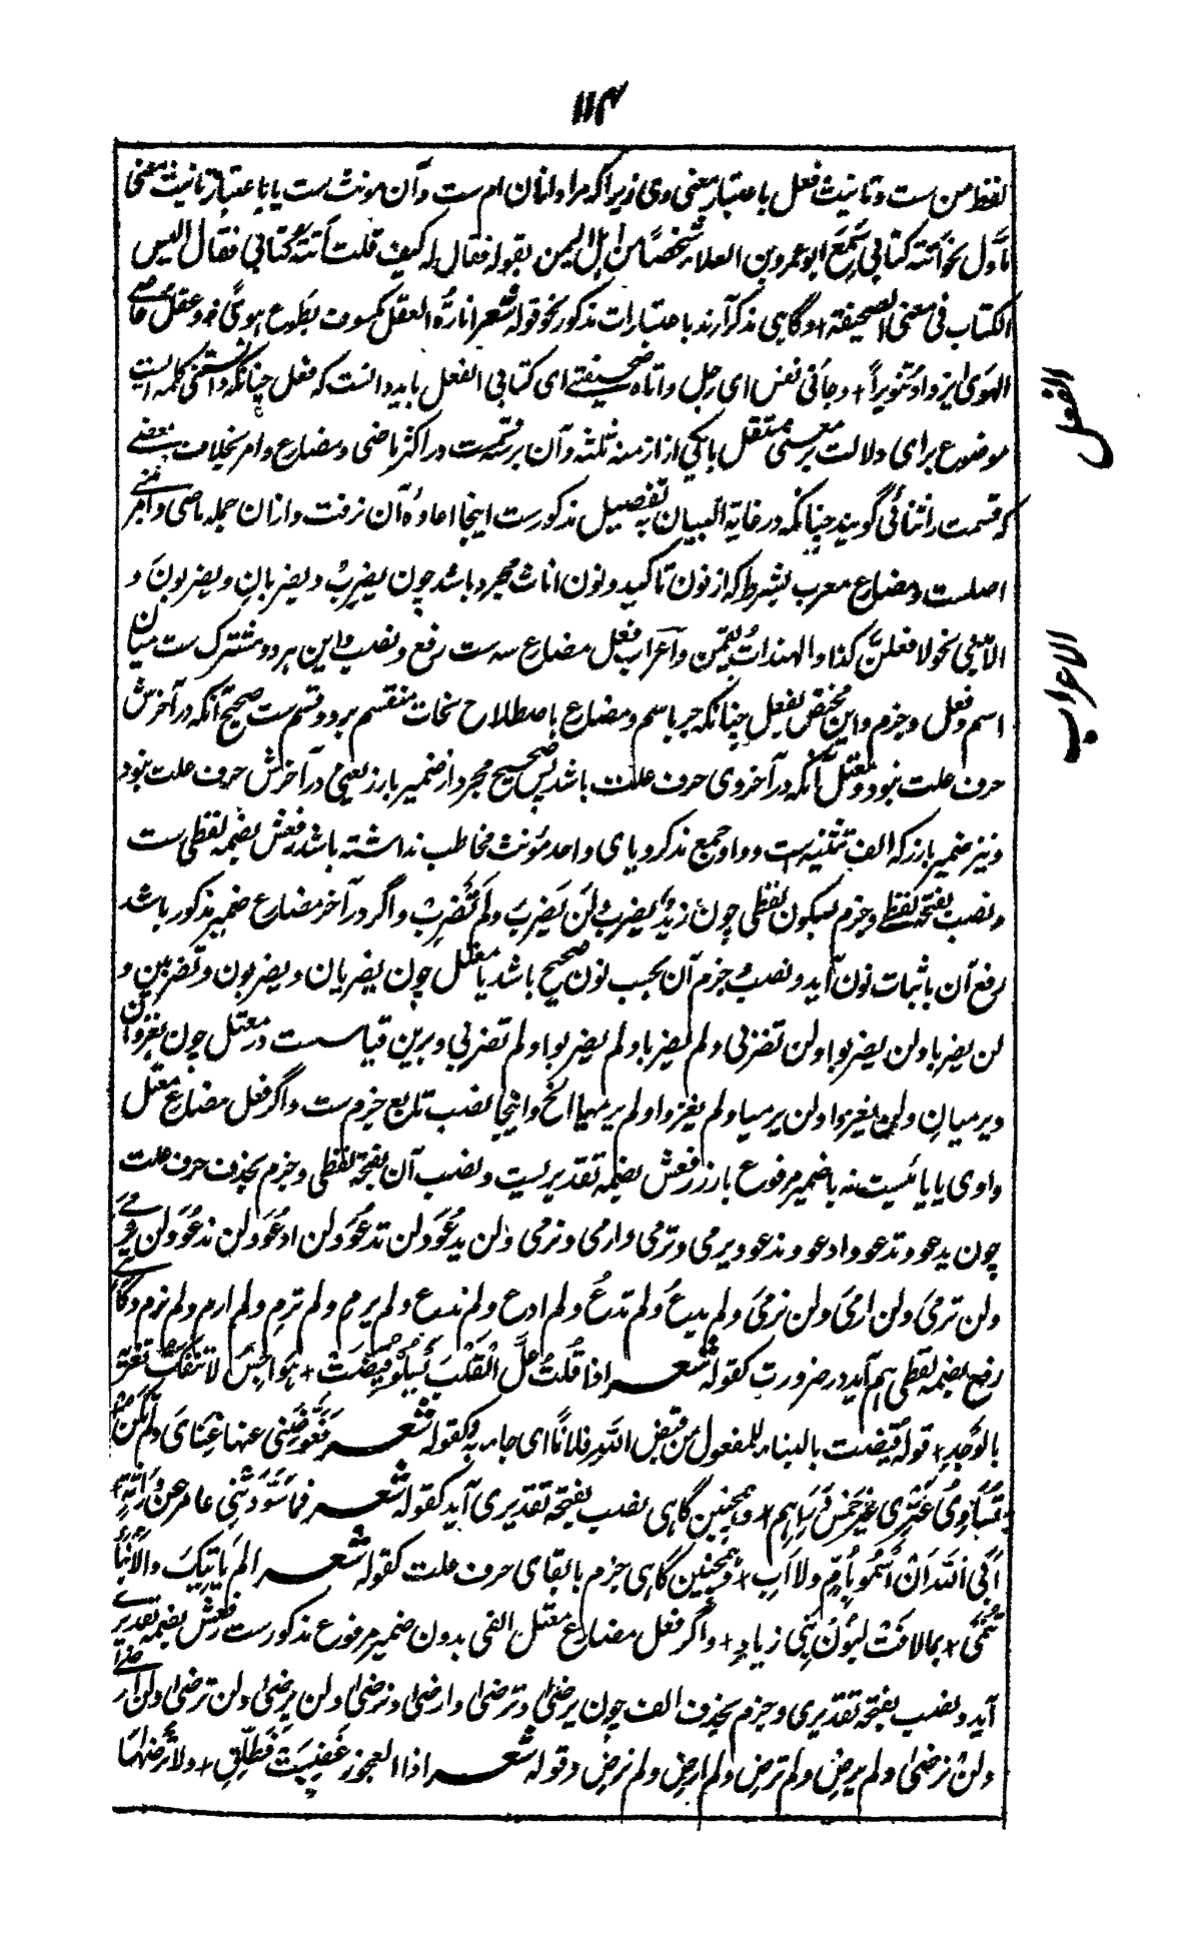 ۱۱۴
لفظ من ست و تانیث فعل باعتبار معنی وی زیراکه مراد ازان ام ست و آن مونث ست یا باعتبار تانیث معنی
مأول نحو أتته کتابی سَمِعَ ابو عمرو بن العلاء شخصًا من اہل الیمن یقوله فقال له کیف قلت أتته کتابی فقال الیس
الکتاب فی معنی الصحیفة + و گاہی مذکر آرند باعتبارات مذکور نحو قوله شعر انارة العقل مکسوف بطوع ہویً + و عقل عاصی
الہوی یزداد تنویراً + و جاءنی نفس ای رجل و اتاہ صحیفتی ای کتابی الفعل باید دانست که فعل چنانکه دانستی کلمه ایست
موضوع برای دلالت بر معنی مستقل با یکی از ازمنه ثلثه و آن بر قسمت در اکثر ماضی و مضارع و امر بخلاف بعضی
که قسمت را ثنائی گویند چنانکه در غایة البیان به تفصیل مذکور ست اینجا اعادهٔ آن نرفت و ازان جمله ماضی و امر مبنی
اصلست و مضارع معرب بشرطیکه از نون تاکید و نون اناث مجرد باشد چون یضربُ و یضربانِ و یضربونَ و
الا مبنی نحو لا فعلنّ کذا و الهنداتُ یقمن و اعراب فعل مضارع سه ست رفع و نصب و این ہر دو مشترک ست میان
اسم و فعل و جزم و این مختص بفعل چنانکه جر باسم و مضارع باصطلاح نحات منقسم بر دو قسم ست صحیح آنکه در آخرش
حرف علت نبود و معتل آنکه در آخر وی حرف علت باشد پس صحیح مجرد از ضمیر بارز یعنی در آخرش حرف علت نبود
و نیز ضمیر بارز که الف تثنیه است و واو جمع مذکر و یای واحد مؤنث مخاطب نداشته باشد رفعش بضمه لفظی ست
و نصب بفتحه لفظی و جزم بسکون لفظی چون زیدٌ یضربُ و لن یضربَ و لم یضربْ و اگر در آخر مضارع ضمیر مذکور باشد
رفع آن باثبات نون آید و نصب و جزم آن بحسب نون صحیح باشد یا معتل چون یضربان و یضربون و تضربین و
لن یضربا و لن یضربوا و لن تضربی و لم یضربا و لم یضربوا و لم تضربی و برین قیاس ست در معتل چون یغزوان
و یرمیانِ و لن یغزوا و لن یرمیا و لم یغزوا و لم یرمیا الخ و اینجا نصب تابع جزم ست و اگر فعل مضارع معتل
واوی یا یائیست نه باضمیر مرفوع بارز رفعش بضمه تقدیریست و نصب آن بفتحه لفظی و جزم بحذف حرف علت
چون یدعو و تدعو و ادعو و ندعو و یرمی و ترمی و ارمی و نرمی و لن یدعُوَ و لن تدعُوَ و لن ادعُوَ و لن ندعُوَ و لن یرمیَ
و لن ترمیَ و لن ارمیَ و لن نرمیَ و لم یدعُ و لم تدعُ و لم ادع و لم ندع و لم یرم و لم ترمِ و لم ارم و لم نرم و گاہی
رفع بضمه لفظی ہم آید در ضرورت کقوله شعر اذا قُلتُ علَّ القلبَ یَسْلُوُ قُیِّضَتْ + ہواجِسُ لا تنفکُّ تغریه
بالوَجدِ + قوله قُیِّضت بالبناء للمفعول من قیض اللہ فلانًا ای جاء به و کقوله شعر فَعَوَّضَنی عنها غِنَایَ و لم تکن
تُسَاوِیُ عَنْزِی غَیْرَ خَمْسِ دَرَاہِم + و ہمچنین گاہی نصب بفتحه تقدیری آید کقوله شعر فما سَوَّدَتْنِی عامر عن وراثةٍ +
اَبَی اللہُ اَنْ اَسْمُو بِاُمٍّ ولا اَبِ + و ہمچنین گاہی جزم بابقای حرف علت کقوله شعر الم یَاتِیکَ والانباءُ
تَنْمِی + بما لاقَتْ لَبُونُ بَنِی زیادِ + و اگر فعل مضارع معتل الفی بدون ضمیر مرفوع مذکور ست رفعش بضمه تقدیری
آید و نصب بفتحه تقدیری و جزم بحذف الف چون یرضیٰ و ترضیٰ و ارضیٰ و نرضیٰ و لن یرضیٰ و لن ترضیٰ و لن ارضیٰ
و لن نرضیٰ و لم یرضِ و لم ترضِ و لم ارضِ و لم نرضِ و قوله شعر اذا العجوز غَضِبَتْ فَطَلِّقِ + و لا ترضها
الفعل
الاعراب